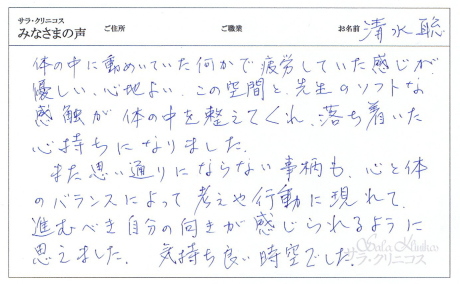 サラ・クリニコス
みなさまの声 ご住所 ご職業 お名前 清水 聡
体の中に動めいていた何かで疲労していた感じが、
優しい、心地よい、この空間と、先生のソフトな
感触が体の中を整えてくれ、落ち着いた
心持ちになりました。
また思い通りにならない事柄も、心と体
のバランスによって考えや行動に現れて、
進むべき自分の向きが感じられるように
思えました。 気持ち良い時空でした。
Sala Klinikos
サラ・クリニコス